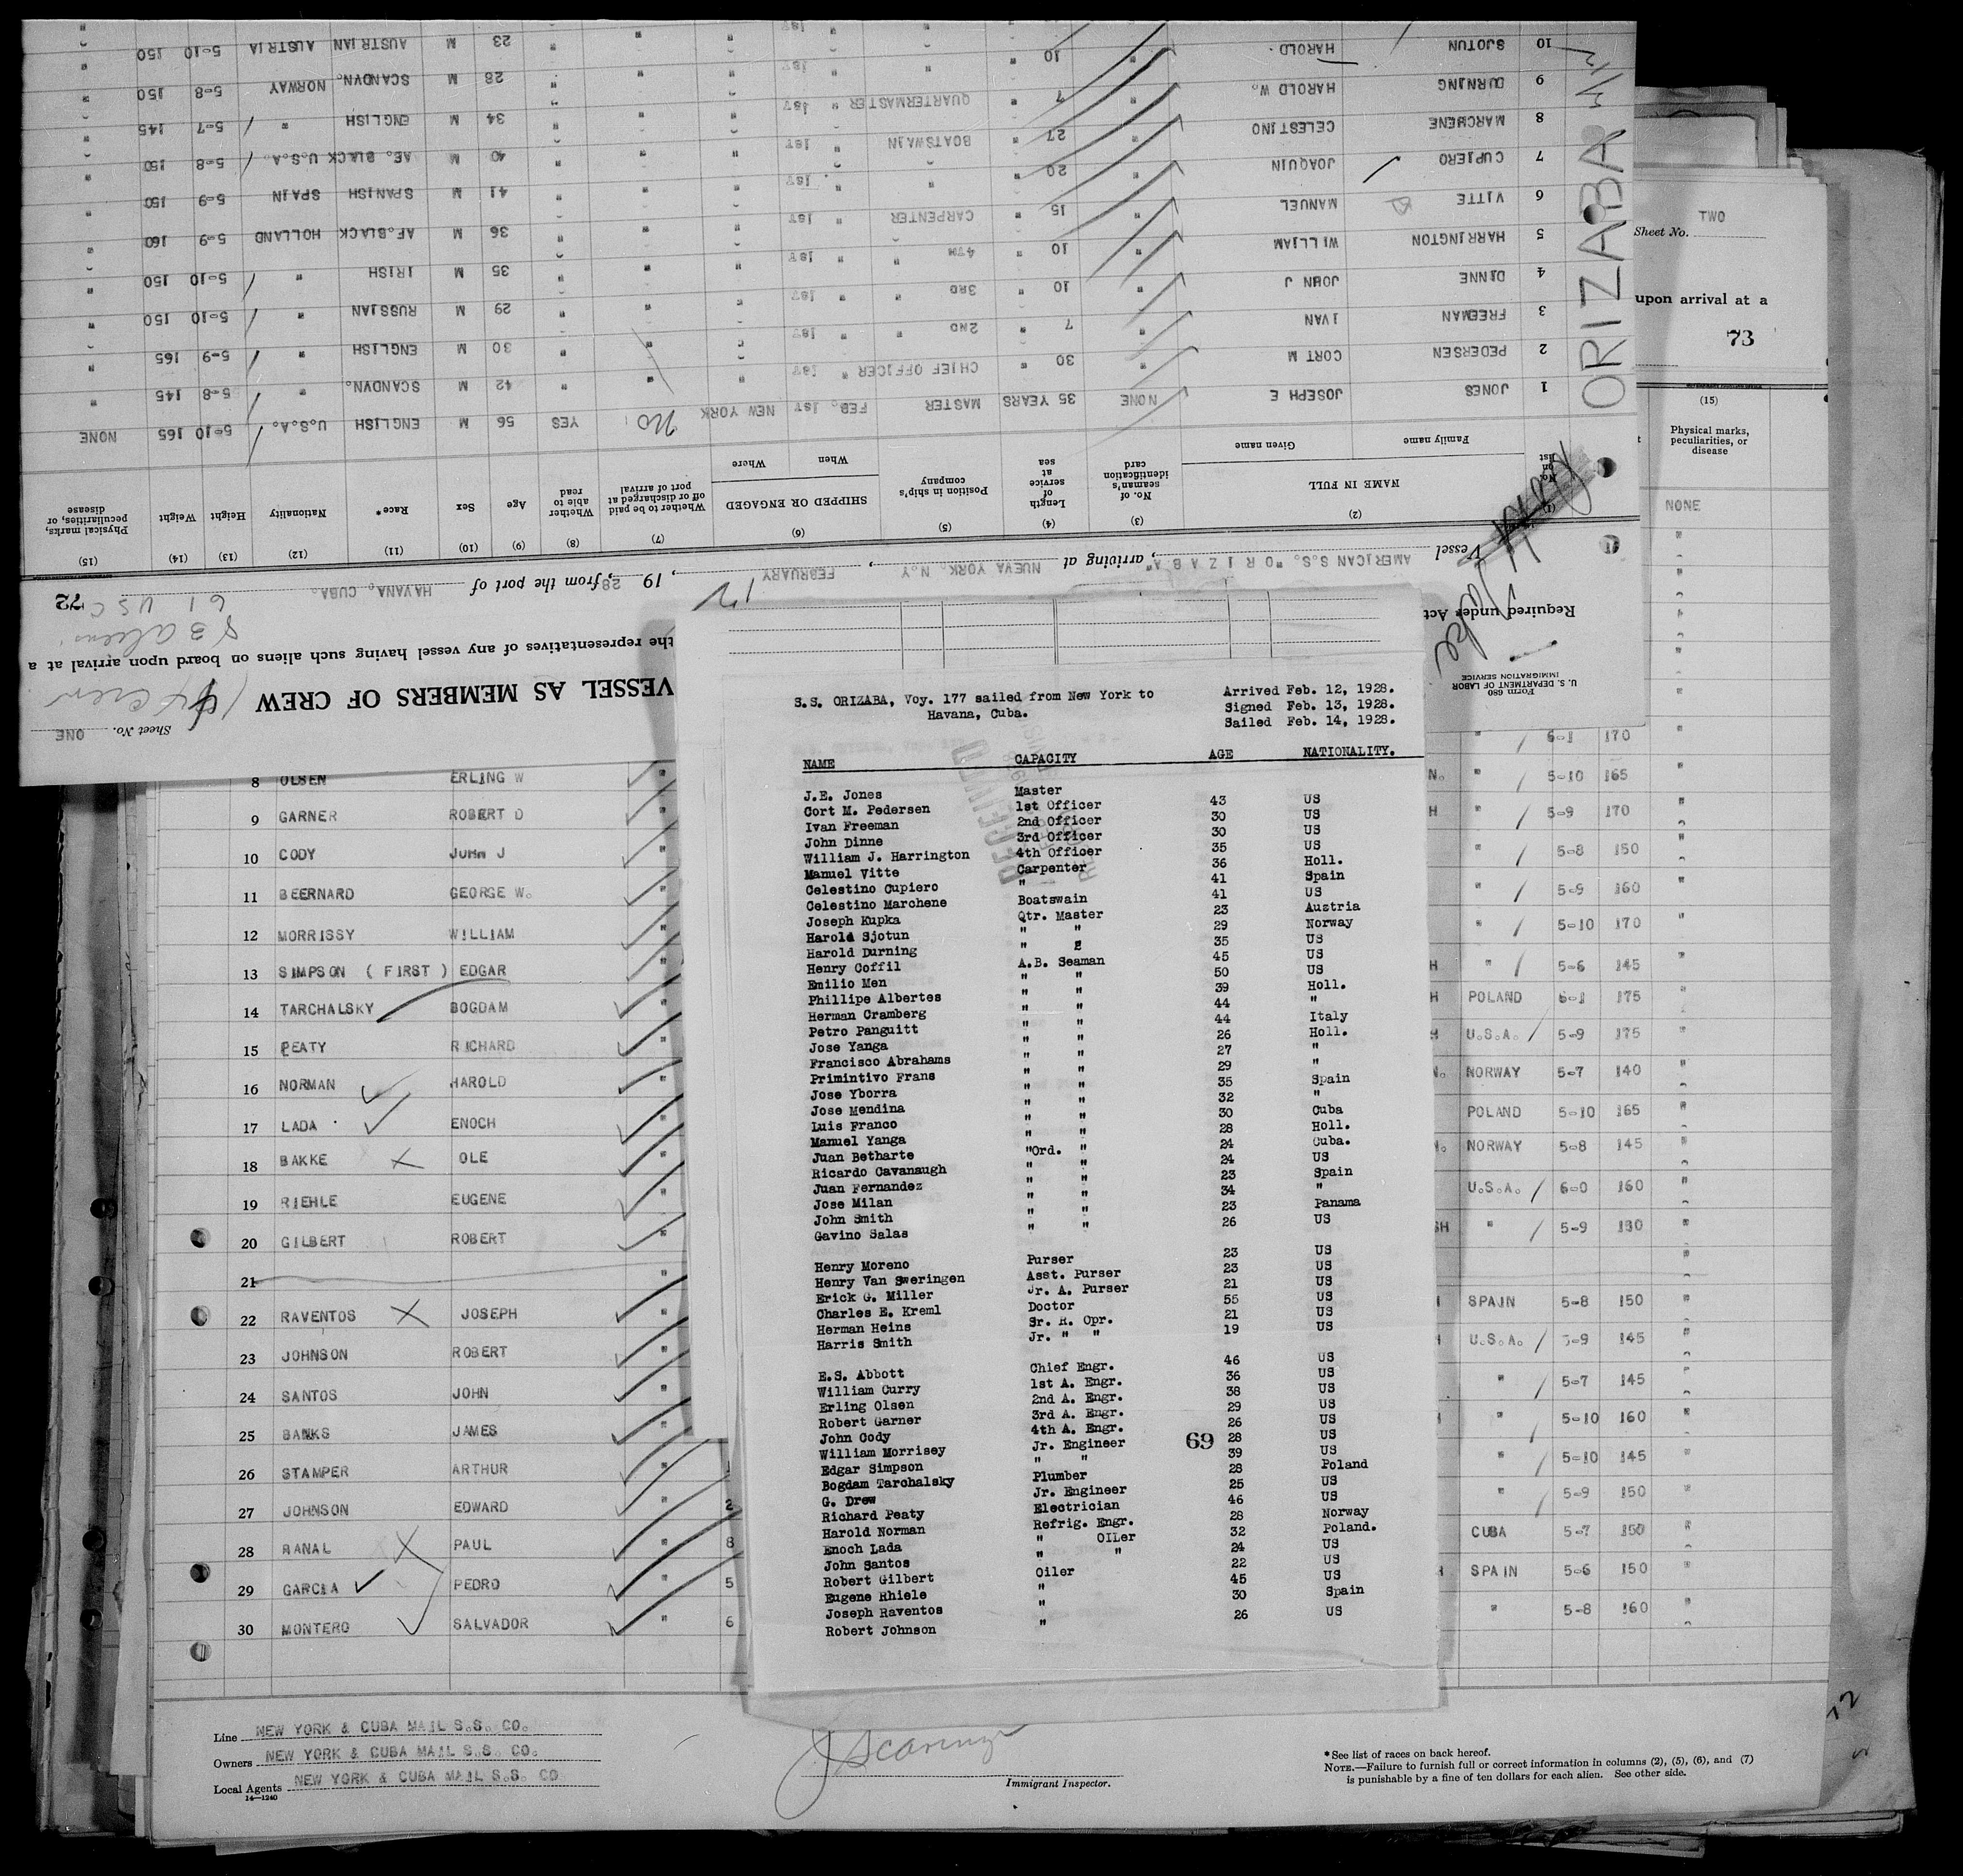 Sheet No. ONE
VESSEL AS MEMBERS OF CREW
the representatives of any vessel having such aliens on board upon arrival at a
Form 680
U. S. DEPARTMENT OF LABOR
IMMIGRATION SERVICE
Required under Act
72
61 USC
Vessel AMERICAN S.S. "ORIZABA", arriving at NUEVA YORK. N.Y., FEBRUARY, 1928, from the port of HAVANA, CUBA.
(1) (2) (3) (4) (5) (6) (7) (8) (9) (10) (11) (12) (13) (14) (15)
No. on list
NAME IN FULL
Family name Given name
No. of seaman's identification card
Length of service at sea
Position in ship's company
SHIPPED OR ENGAGED
When Where
Whether to be paid off or discharged at port of arrival
Whether able to read
Age
Sex
Race*
Nationality
Height
Weight
Physical marks, peculiarities, or disease
1 JONES JOSEPH E NONE 35 YEARS MASTER FEB. 1st NEW YORK No YES 56 M ENGLISH U.S.A. 5-10 165 NONE
2 PEDERSEN CORT M " 30 " CHIEF OFFICER " 1st " " " 42 M SCANDVN. " 5-8 145 "
3 FREEMAN IVAN " 7 " 2ND " " 1st " " " 30 M ENGLISH " 5-9 165 "
4 DINNE JOHN J " 10 " 3RD " " 1st " " " 29 M RUSSIAN " 5-10 150 "
5 HARRINGTON WILLIAM " 10 " 4TH " " 1st " " " 35 M IRISH " 5-10 150 "
6 VITTE MANUEL " 15 " CARPENTER " 1st " " " 36 M AF.BLACK HOLLAND 5-9 160 "
7 CUPIERO JOAQUIN " 20 " " " 1st " " " 41 M SPANISH SPAIN 5-9 150 "
8 MARCHENE CELESTINO " 27 " BOATSWAIN " 1st " " " 40 M AF. BLACK U.S.A. 5-8 150 "
9 DURNING HAROLD W. " 7 " QUARTERMASTER " 1st " " " 34 M ENGLISH " 5-7 145 "
10 SJOTUN HAROLD. " 10 " " " 1st " " " 28 M SCANDVN. NORWAY 5-8 150 "
23 M AUSTRIAN AUSTRIA 5-10 150 "
ORIZABA
TWO
Sheet No.
upon arrival at a
73
(15)
Physical marks, peculiarities, or disease
NONE
S.S. ORIZABA, Voy. 177 sailed from New York to
Havana, Cuba.
Arrived Feb. 12, 1928.
Signed Feb. 13, 1928.
Sailed Feb. 14, 1928.
RECEIVED
NAME CAPACITY AGE NATIONALITY.
J.E. Jones Master 43 US
Cort M. Pedersen 1st Officer 30 US
Ivan Freeman 2nd Officer 30 US
John Dinne 3rd Officer 35 US
William J. Harrington 4th Officer 36 Holl.
Manuel Vitte Carpenter 41 Spain
Celestino Cupiero " 41 US
Celestino Marchene Boatswain 23 Austria
Joseph Kupka Qtr. Master 29 Norway
Harold Sjotun " " 35 US
Harold Durning " " 45 US
Henry Coffil A.B. Seaman 50 US
Emilio Men " " 39 Holl.
Phillipe Albertes " " 44 "
Herman Cramberg " " 44 Italy
Petro Panguitt " " 26 Holl.
Jose Yanga " " 27 "
Francisco Abrahams " " 29 "
Primintivo Frans " " 35 Spain
Jose Yborra " " 32 "
Jose Mendina " " 30 Cuba
Luis Franco " " 28 Holl.
Manuel Yanga " " 24 Cuba.
Juan Betharte "Ord. " 24 US
Ricardo Cavanaugh " " 23 Spain
Juan Fernandez " " 34 "
Jose Milan " " 23 Panama
John Smith " " 26 US
Gavino Salas " "
Henry Moreno Purser 23 US
Henry Van Sweringen Asst. Purser 23 US
Erick G. Miller Jr. A. Purser 21 US
Charles E. Kreml Doctor 55 US
Herman Heins Sr. R. Opr. 21 US
Harris Smith Jr. " " 19 US
E.S. Abbott Chief Engr. 46 US
William Curry 1st A. Engr. 36 US
Erling Olsen 2nd A. Engr. 38 US
Robert Garner 3rd A. Engr. 29 US
John Cody 4th A. Engr. 26 US
William Morrisey Jr. Engineer 69 28 US
Edgar Simpson " " 39 US
Bogdam Tarchalsky Plumber 28 Poland
G. Drew Jr. Engineer 25 US
Richard Peaty Electrician 46 US
Harold Norman Refrig. Engr. 28 Norway
Enoch Lada " OILer 32 Poland.
John Santos " " 24 US
Robert Gilbert Oiler 22 US
Eugene Rhiele " 45 US
Joseph Raventos " 30 Spain
Robert Johnson " 26 US
" 6-1 170 "
8 OLSEN ERLING W " N. " 5-10 165 "
9 GARNER ROBERT D " H " 5-9 170 "
10 CODY JOHN J " " 5-8 150 "
11 BEERNARD GEORGE W. " " 5-9 160 "
12 MORRISSY WILLIAM " " 5-10 170 "
13 SIMPSON ( FIRST ) EDGAR " H " 5-6 145 "
14 TARCHALSKY BOGDAM " H POLAND 6-1 175 "
15 PEATY RICHARD " H U.S.A. 5-9 175 "
16 NORMAN HAROLD " N. NORWAY 5-7 140 "
17 LADA ENOCH " POLAND 5-10 165 "
18 BAKKE OLE " N. NORWAY 5-8 145 "
19 RIEHLE EUGENE " U.S.A. 6-0 160 "
20 GILBERT ROBERT " SH " 5-9 130 "
21 "
22 RAVENTOS JOSEPH " H SPAIN 5-8 150 "
23 JOHNSON ROBERT " H U.S.A. 5-9 145 "
24 SANTOS JOHN " " 5-7 145 "
25 BANKS JAMES " " 5-10 160 "
26 STAMPER ARTHUR " " 5-10 145 "
27 JOHNSON EDWARD " 2 " 5-9 150 "
28 RANAL PAUL " 8 CUBA 5-7 150 "
29 GARCIA PEDRO " 5 H SPAIN 5-6 150 "
30 MONTERO SALVADOR " 6 " 5-8 160 "
Line NEW YORK & CUBA MAIL S.S. CO.
Owners NEW YORK & CUBA MAIL S.S. CO.
Local Agents NEW YORK & CUBA MAIL S.S. CO
14—1240
Immigrant Inspector.
*See list of races on back hereof.
NOTE.—Failure to furnish full or correct information in columns (2), (5), (6), and (7)
is punishable by a fine of ten dollars for each alien. See other side.
72